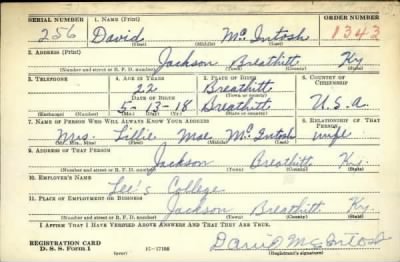 SERIAL NUMBER 1. NAME (Print) ORDER NUMBER
256 David Mc Intosh 1343
(First) (Middle) (Last)
2. ADDRESS (Print)
Jackson Breathitt Ky.
(Number and street or R. F. D. number) (Town) (County) (State)
3. TELEPHONE 4. AGE IN YEARS 5. PLACE OF BIRTH 6. COUNTRY OF CITIZENSHIP
22 Breathitt
(Town or county)
DATE OF BIRTH
5-13-18 Breathitt U.S.A.
(Exchange) (Number) (Mo.) (Day) (Yr.) (State or country)
7. NAME OF PERSON WHO WILL ALWAYS KNOW YOUR ADDRESS 8. RELATIONSHIP OF THAT PERSON
Mrs. Lillie Mae Mc Intosh wife
(Mr., Mrs., Miss) (First) (Middle) (Last)
9. ADDRESS OF THAT PERSON
Jackson Breathitt Ky.
(Number and street or R. F. D. number) (Town) (County) (State)
10. EMPLOYER'S NAME
Lee's College
11. PLACE OF EMPLOYMENT OR BUSINESS
Jackson Breathitt Ky.
(Number and street or R. F. D. number) (Town) (County) (State)
I AFFIRM THAT I HAVE VERIFIED ABOVE ANSWERS AND THAT THEY ARE TRUE.
REGISTRATION CARD
D. S. S. Form 1 (over) David McIntosh
(Registrant's signature)